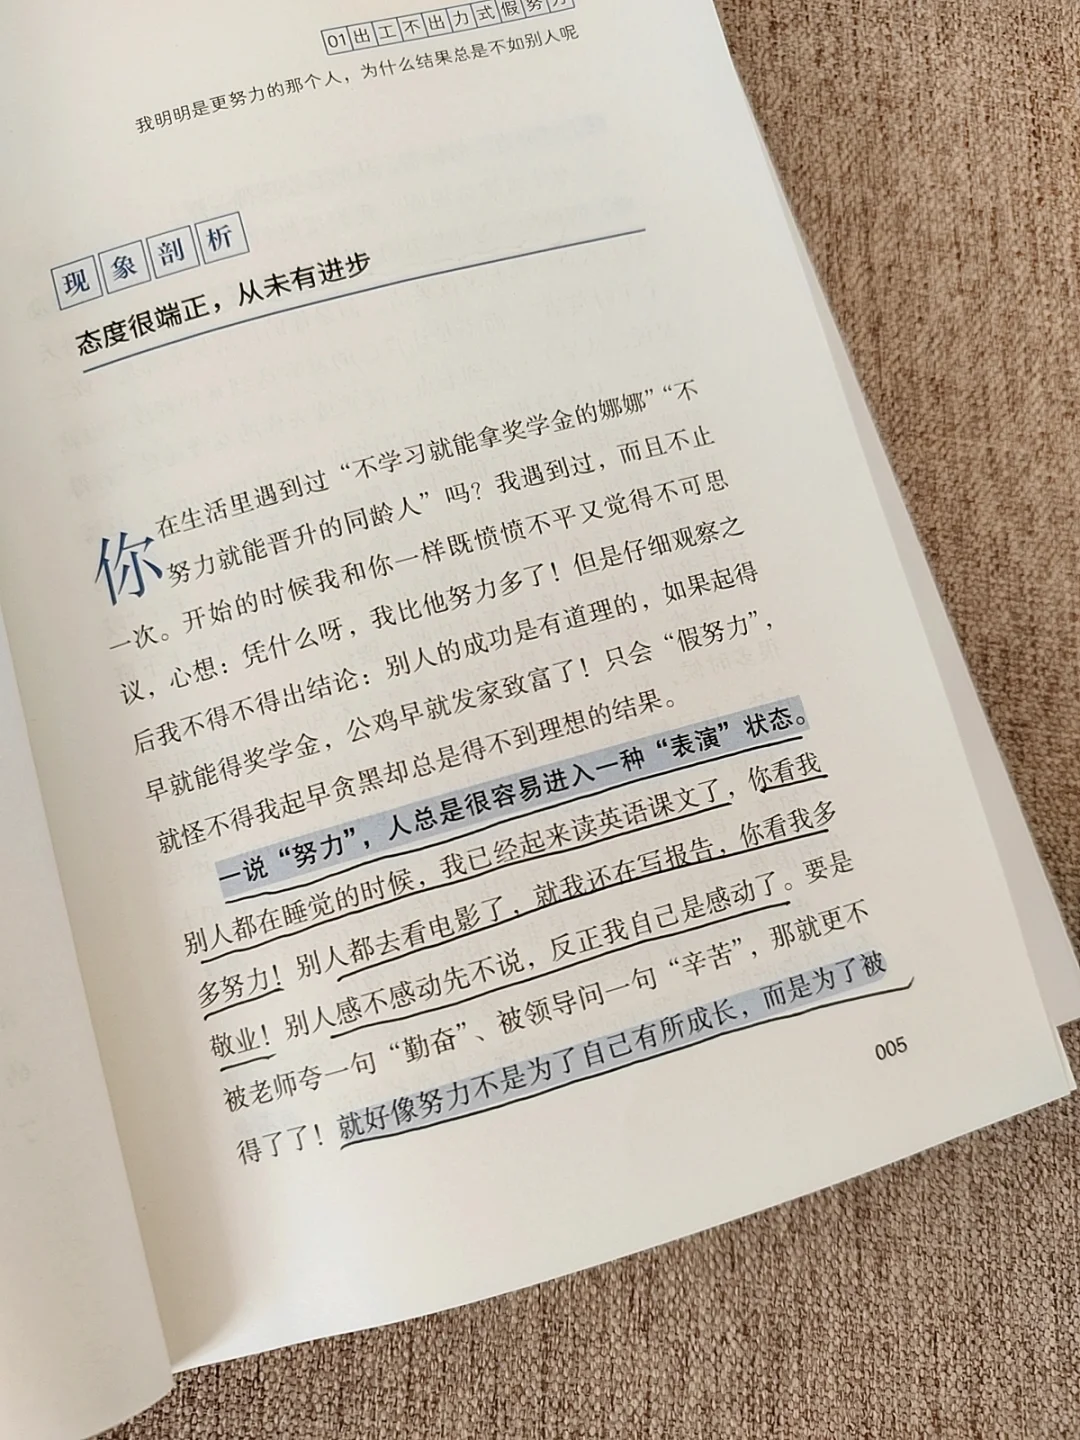 01出工不出力式假努力
我明明是更努力的那个人，为什么结果总是不如别人呢
现象剖析
态度很端正，从未有进步
你在生活里遇到过“不学习就能拿奖学金的娜娜”“不
努力就能晋升的同龄人”吗？我遇到过，而且不止
一次。开始的时候我和你一样既愤愤不平又觉得不可思
议，心想：凭什么呀，我比他努力多了！但是仔细观察之
后我不得不得出结论：别人的成功是有道理的，如果起得
早就能得奖学金，公鸡早就发家致富了！只会“假努力”，
就怪不得我起早贪黑却总是得不到理想的结果。
一说“努力”，人总是很容易进入一种“表演”状态。
别人都在睡觉的时候，我已经起来读英语课文了，你看我
多努力！别人都去看电影了，就我还在写报告，你看我多
敬业！别人感不感动先不说，反正我自己是感动了。要是
被老师夸一句“勤奋”、被领导问一句“辛苦”，那就更不
得了了！就好像努力不是为了自己有所成长，而是为了被
005